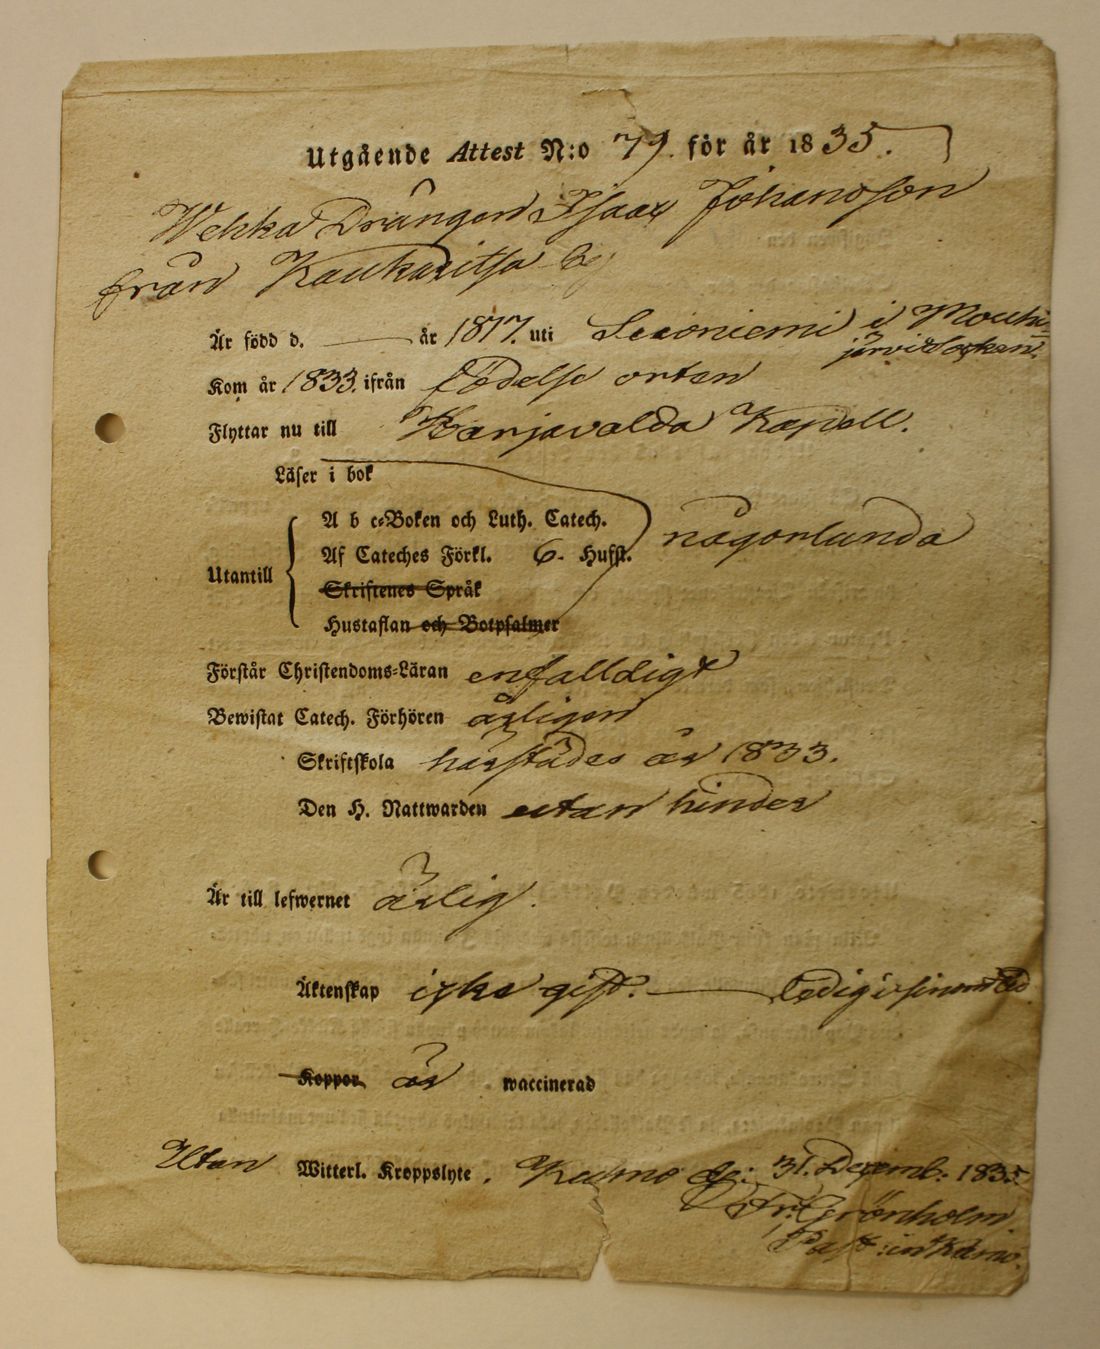 Utgående Attest N:o 79. för år 1835.
Wehka Drängen Isaac Johansson
från Kaukaritsa by
Är född d. — år 1817. uti Sexoniemi i Mouhi-
järvi Socken.
Kom år 1833. ifrån födelse orten
Flyttar nu till Harjavalda Kapell.
Läser i bok
A b c-Boken och Luth. Catech. någorlunda
Af Cateches Förkl. 6. Hufst.
Utantill
Skriftenes Språk
Hustaflan och Botpsalmer
Förstår Christendoms-Läran enfalldigt
Bewistat Catech. Förhören årligen
Skriftskola härstädes år 1833.
Den H. Nattwarden utan hinder
Är till lefwernet ärlig.
Äktenskap icke gift. — ledig i sinom tid
Koppor är waccinerad
Utan Witterl. Kroppslyte. Kumo d. 31. Decemb: 1835.
Fr: Grönholm
Past: in Kumo.